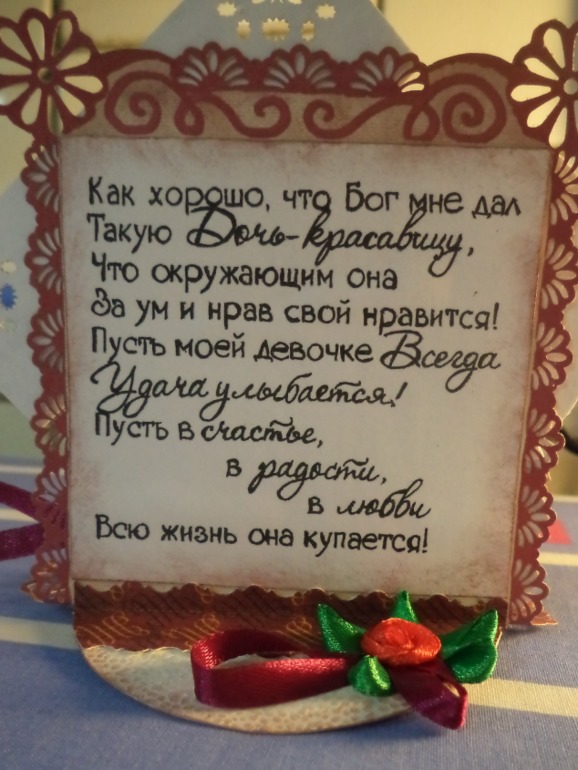 Как хорошо, что Бог мне дал
Такую Дочь-красавицу,
Что окружающим она
За ум и нрав свой нравится!
Пусть моей девочке Всегда
Удача улыбается!
Пусть в счастье,
в радости,
в любви
Всю жизнь она купается!